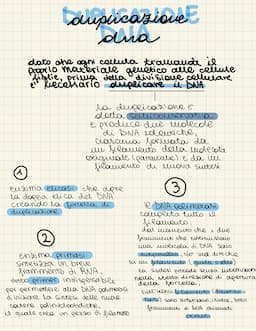 DUPLICAZIONE
DNA
duplicazione
dna
dato che ogni cellula tramanda il
proprio materiale genetico alle cellule
figlie, prima della divisione cellulare
e' necessario duplicare il DNA
la duplicazione è
detta semiconservativa
e produce due molecole
di DNA identiche,
ciascuna formata da
un filamento della molecola
originale (parentale) e da un
filamento di nuova sintesi
1
enzima elicasi che apre
la doppia elica del DNA
creando la forcella di
duplicazione
2
enzima primasi
sintetizza un breve
frammento di RNA,
detto primer indispensabile
per permettere alla DNA polimerasi
di iniziare la sintesi delle nuove
catene polinucleotidiche,
il quale crea un pezzo di filamento
3
le DNA polimerasi
completa tutto il
filamento.
dal momento che i due
filamenti che costituiscono
una molecola di DNA sono